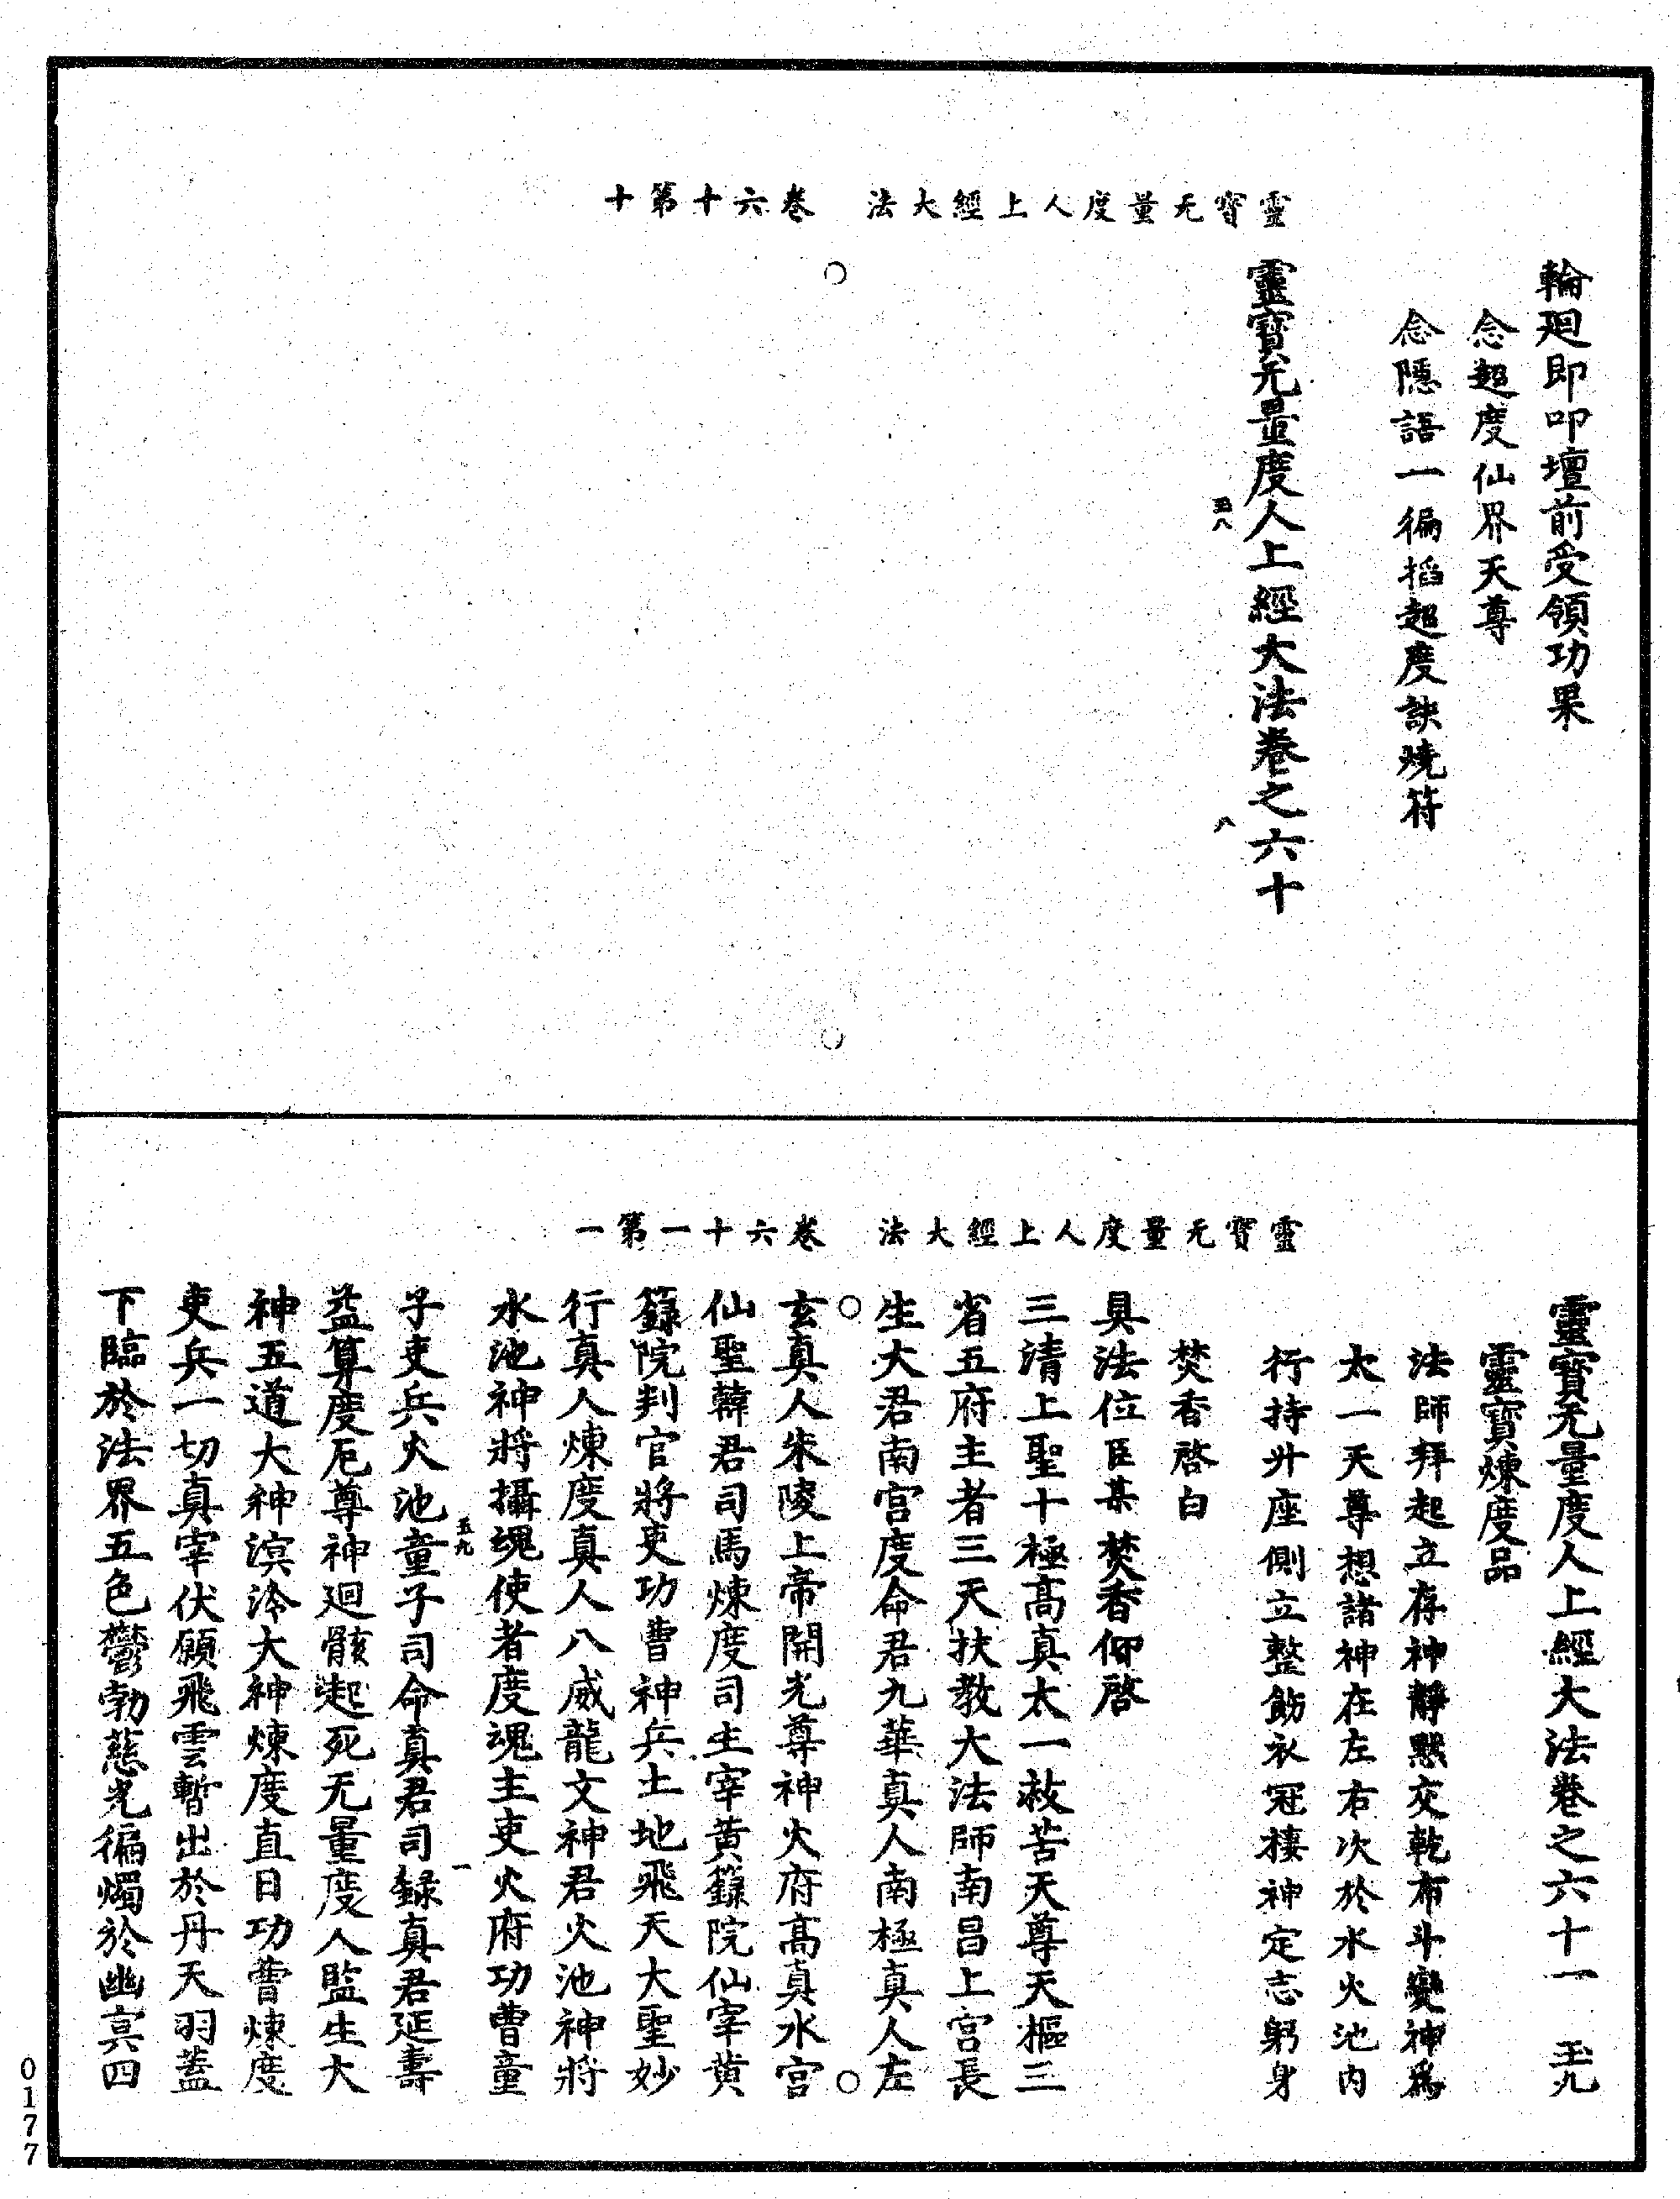 靈寶无量度人上經大法　卷六十第十
輪廻即叩壇前受領功果
念超度仙界天尊
念隱語一徧掐超度訣燒符
靈寶无量度人上經大法卷之六十
五八
八
靈寶无量度人上經大法　卷六十一第一
靈寶无量度人上經大法卷之六十一　五九
靈寶煉度品
法師拜起立存神靜默交乾布斗變神爲
太一天尊想諸神在左右次於水火池內
行持升座側立整飭衣冠棲神定志躬身
焚香啓白
具法位臣某焚香仰啓
三清上聖十極高真太一救苦天尊天樞三
省五府主者三天扶教大法師南昌上宮長
生大君南宮度命君九華真人南極真人左
玄真人朱陵上帝開光尊神火府高真水宮
仙聖韓君司馬煉度司主宰黃籙院仙宰黃
籙院判官將吏功曹神兵土地飛天大聖妙
行真人煉度真人八威龍文神君火池神將
水池神將攝魂使者度魂主吏火府功曹童
五九
一
子吏兵火池童子司命真君司錄真君延壽
益算度厄尊神廻骸起死无量度人監生大
神五道大神溟泠大神煉度直日功曹煉度
吏兵一切真宰伏願飛雲暫出於丹天羽蓋
下臨於法界五色鬱勃慈光徧燭於幽冥四
0177